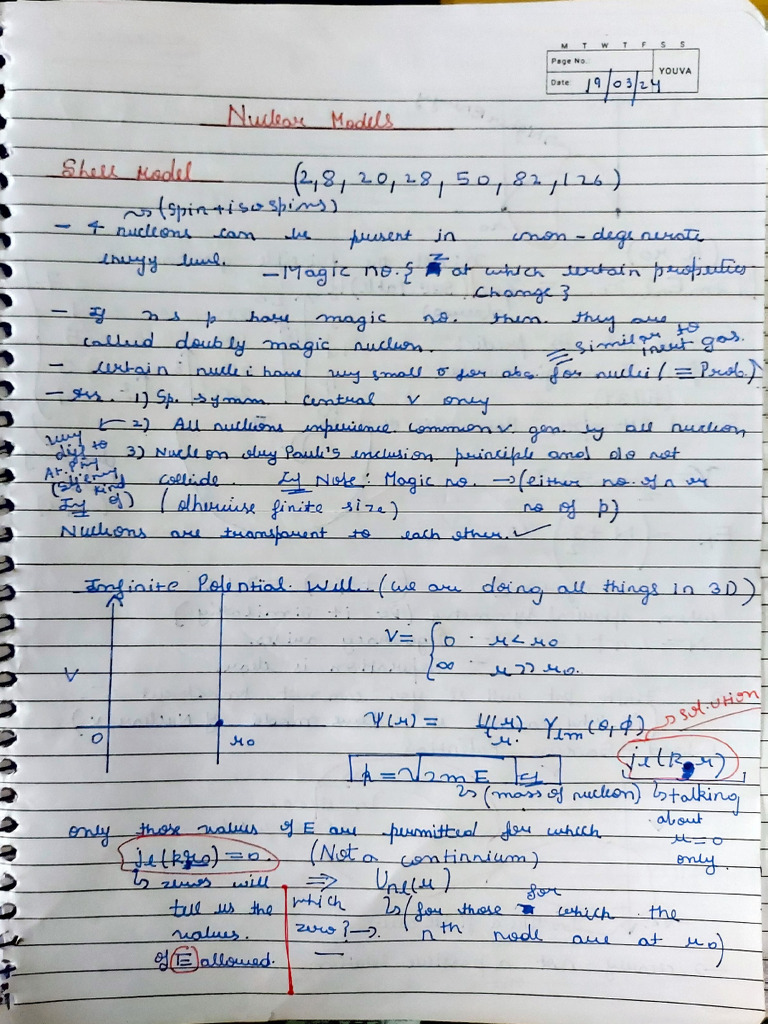 M T W T F S S
Page No.:
YOUVA
Date: 19/03/24
Nuclear Models
Shell Model (2, 8, 20, 28, 50, 82, 126)
(spin + isospins)
- 4 nucleons can be present in (non-degenerate
energy level. - Magic no. { Z at which certain properties
change }
- If n s p have magic no. then they are
called doubly magic nucleon.
≡ similar to
inert gas.
- certain nuclei have very small σ for abs. for nuclei (≡ Prob.)
- Ass. 1) Sp. symm. central V only
2) All nucleons experience common V gen. by all nucleon
very
diff to
At. Phy
3) Nucleon obey Pauli's exclusion principle and do not
collide. Note: Magic no. → (either no. of n or
no of p)
(otherwise finite size)
Nucleons are transparent to each other. ✓
Infinite Potential Well. (we are doing all things in 3D)
V = { 0 r < r0
∞ r >> r0.
V
0 r0
ψ(r) = U(r)/r. Ylm(θ, φ) → SOLUTION
jl(k r)
k = √2mE
↳ (mass of nucleon) ↳ talking
about
r = 0
only.
only those values of E are permitted for which
jl(kr0) = 0. (Not a continnium)
↳ zeros will ⇒ Unl(r)
tell us the
values.
of E allowed.
which
zero? →
↳ (for those for which the
nth node are at r0)